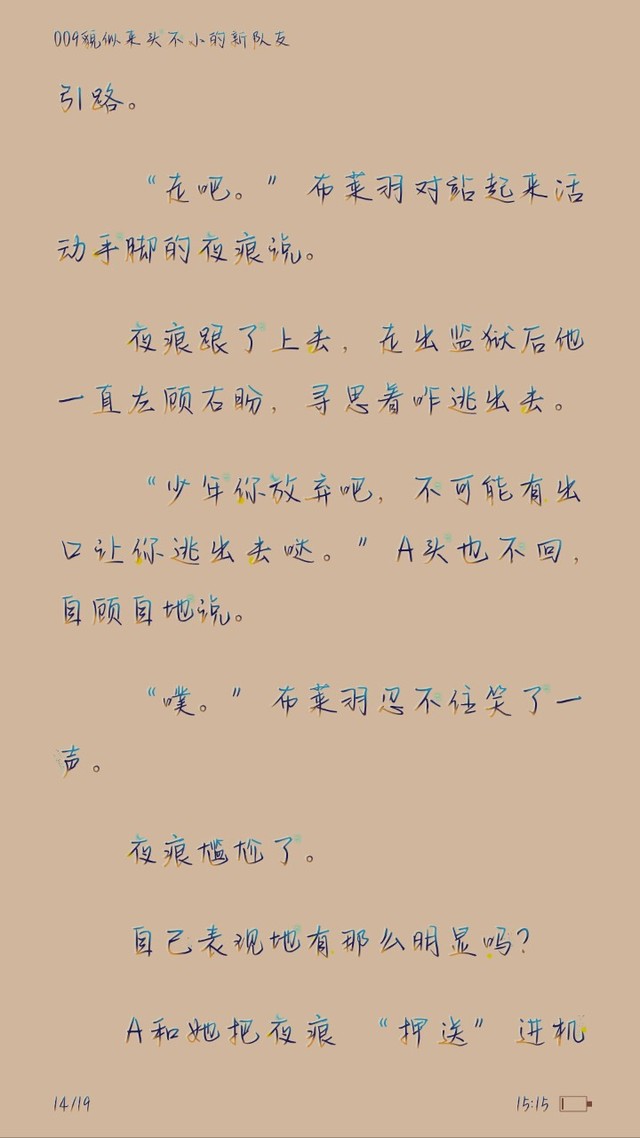 009貌似来头不小的新队友
引路。
“走吧。”布莱羽对站起来活
动手脚的夜痕说。
夜痕跟了上去，走出监狱后他
一直左顾右盼，寻思着咋逃出去。
“少年你放弃吧，不可能有出
口让你逃出去哒。”A头也不回，
自顾自地说。
“噗。”布莱羽忍不住笑了一
声。
夜痕尴尬了。
自己表现地有那么明显吗？
A和她把夜痕“押送”进机
14/19
15:15